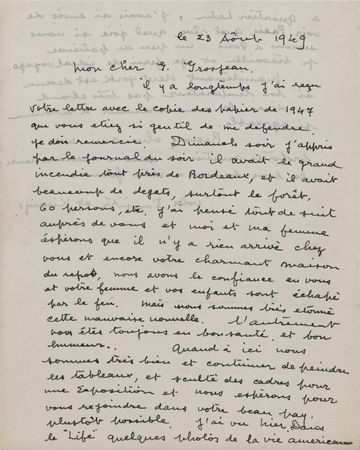 le 23 Août 1949
mon cher G. Grosjean.
il y a longtemps j'ai reçu
votre lettre avec le copie des papier de 1947
que vous etiez si gentil de me defendre.
je dois remercie. Dimanch soir j'appris
par le journal du soir il avait le grand
incendie tout près de Bordeaux, et il avait
beaucoup de degats, surtout le forêt,
60 persons, etc. j'ai pensé tout de suit
auprès de vous et moi et ma femme
espérons que il n'y a rien arrivé chez
vous et encore votre charmant maison
du repos, nous avons le confiance en vous
et votre femme et vos enfants sont échapé
par le feu. mais nous summes très etonné
cette mauvaise nouvelle. L'autrement
vous êtes toujours en bon santé et bon
humeur.. Quand à ici nous
sommes très bien et continuer de peindre
les tableaux, et sculté des cadres pour
une Exposition et nous espérons pour
vous rejoindre dans votre beau pay.
plustôt possible. j'ai vu hier Dans
le "Life" quelques photos de la vie american